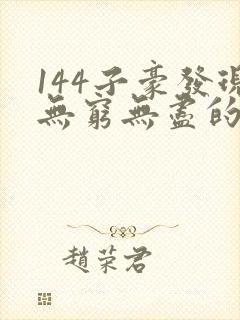 144子豪發現
無窮無盡的
趙荣君